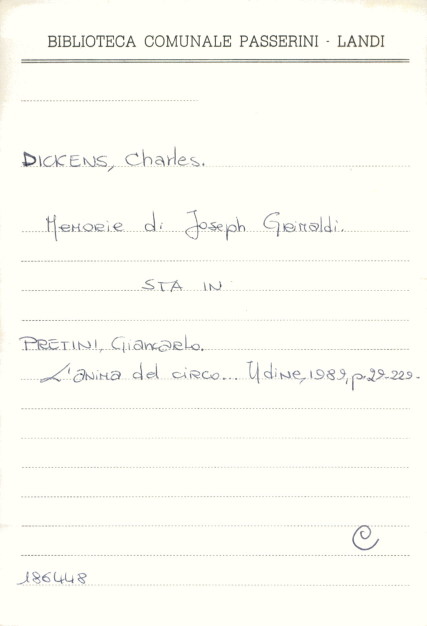 BIBLIOTECA COMUNALE PASSERINI - LANDI
DICKENS, Charles.
Memorie di Joseph Grimaldi.
STA IN
PRETINI, Giancarlo.
L'anima del circo... Udine, 1989, p. 29-229.
C
186448